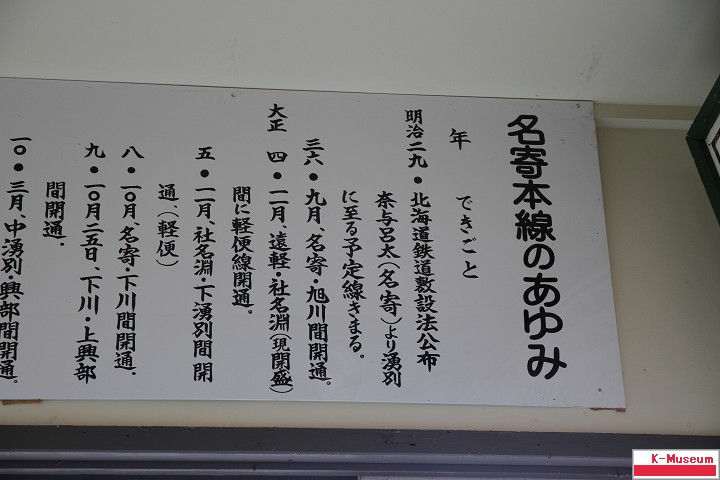 名寄本線のあゆみ
年　できごと
明治二九・北海道鉄道敷設法公布
奈与呂太(名寄)より湧別
に至る予定線きまる。
三六・九月、名寄・旭川間開通。
大正　四・一一月、遠軽・社名淵(現開盛)
間に軽便線開通。
五・一一月、社名淵・下湧別間開
通、(軽便)
八・一〇月、名寄・下川間開通.
九・一〇月二五日、下川・上興部
間開通.
一〇・三月、中湧別・興部間開通。
K-Museum